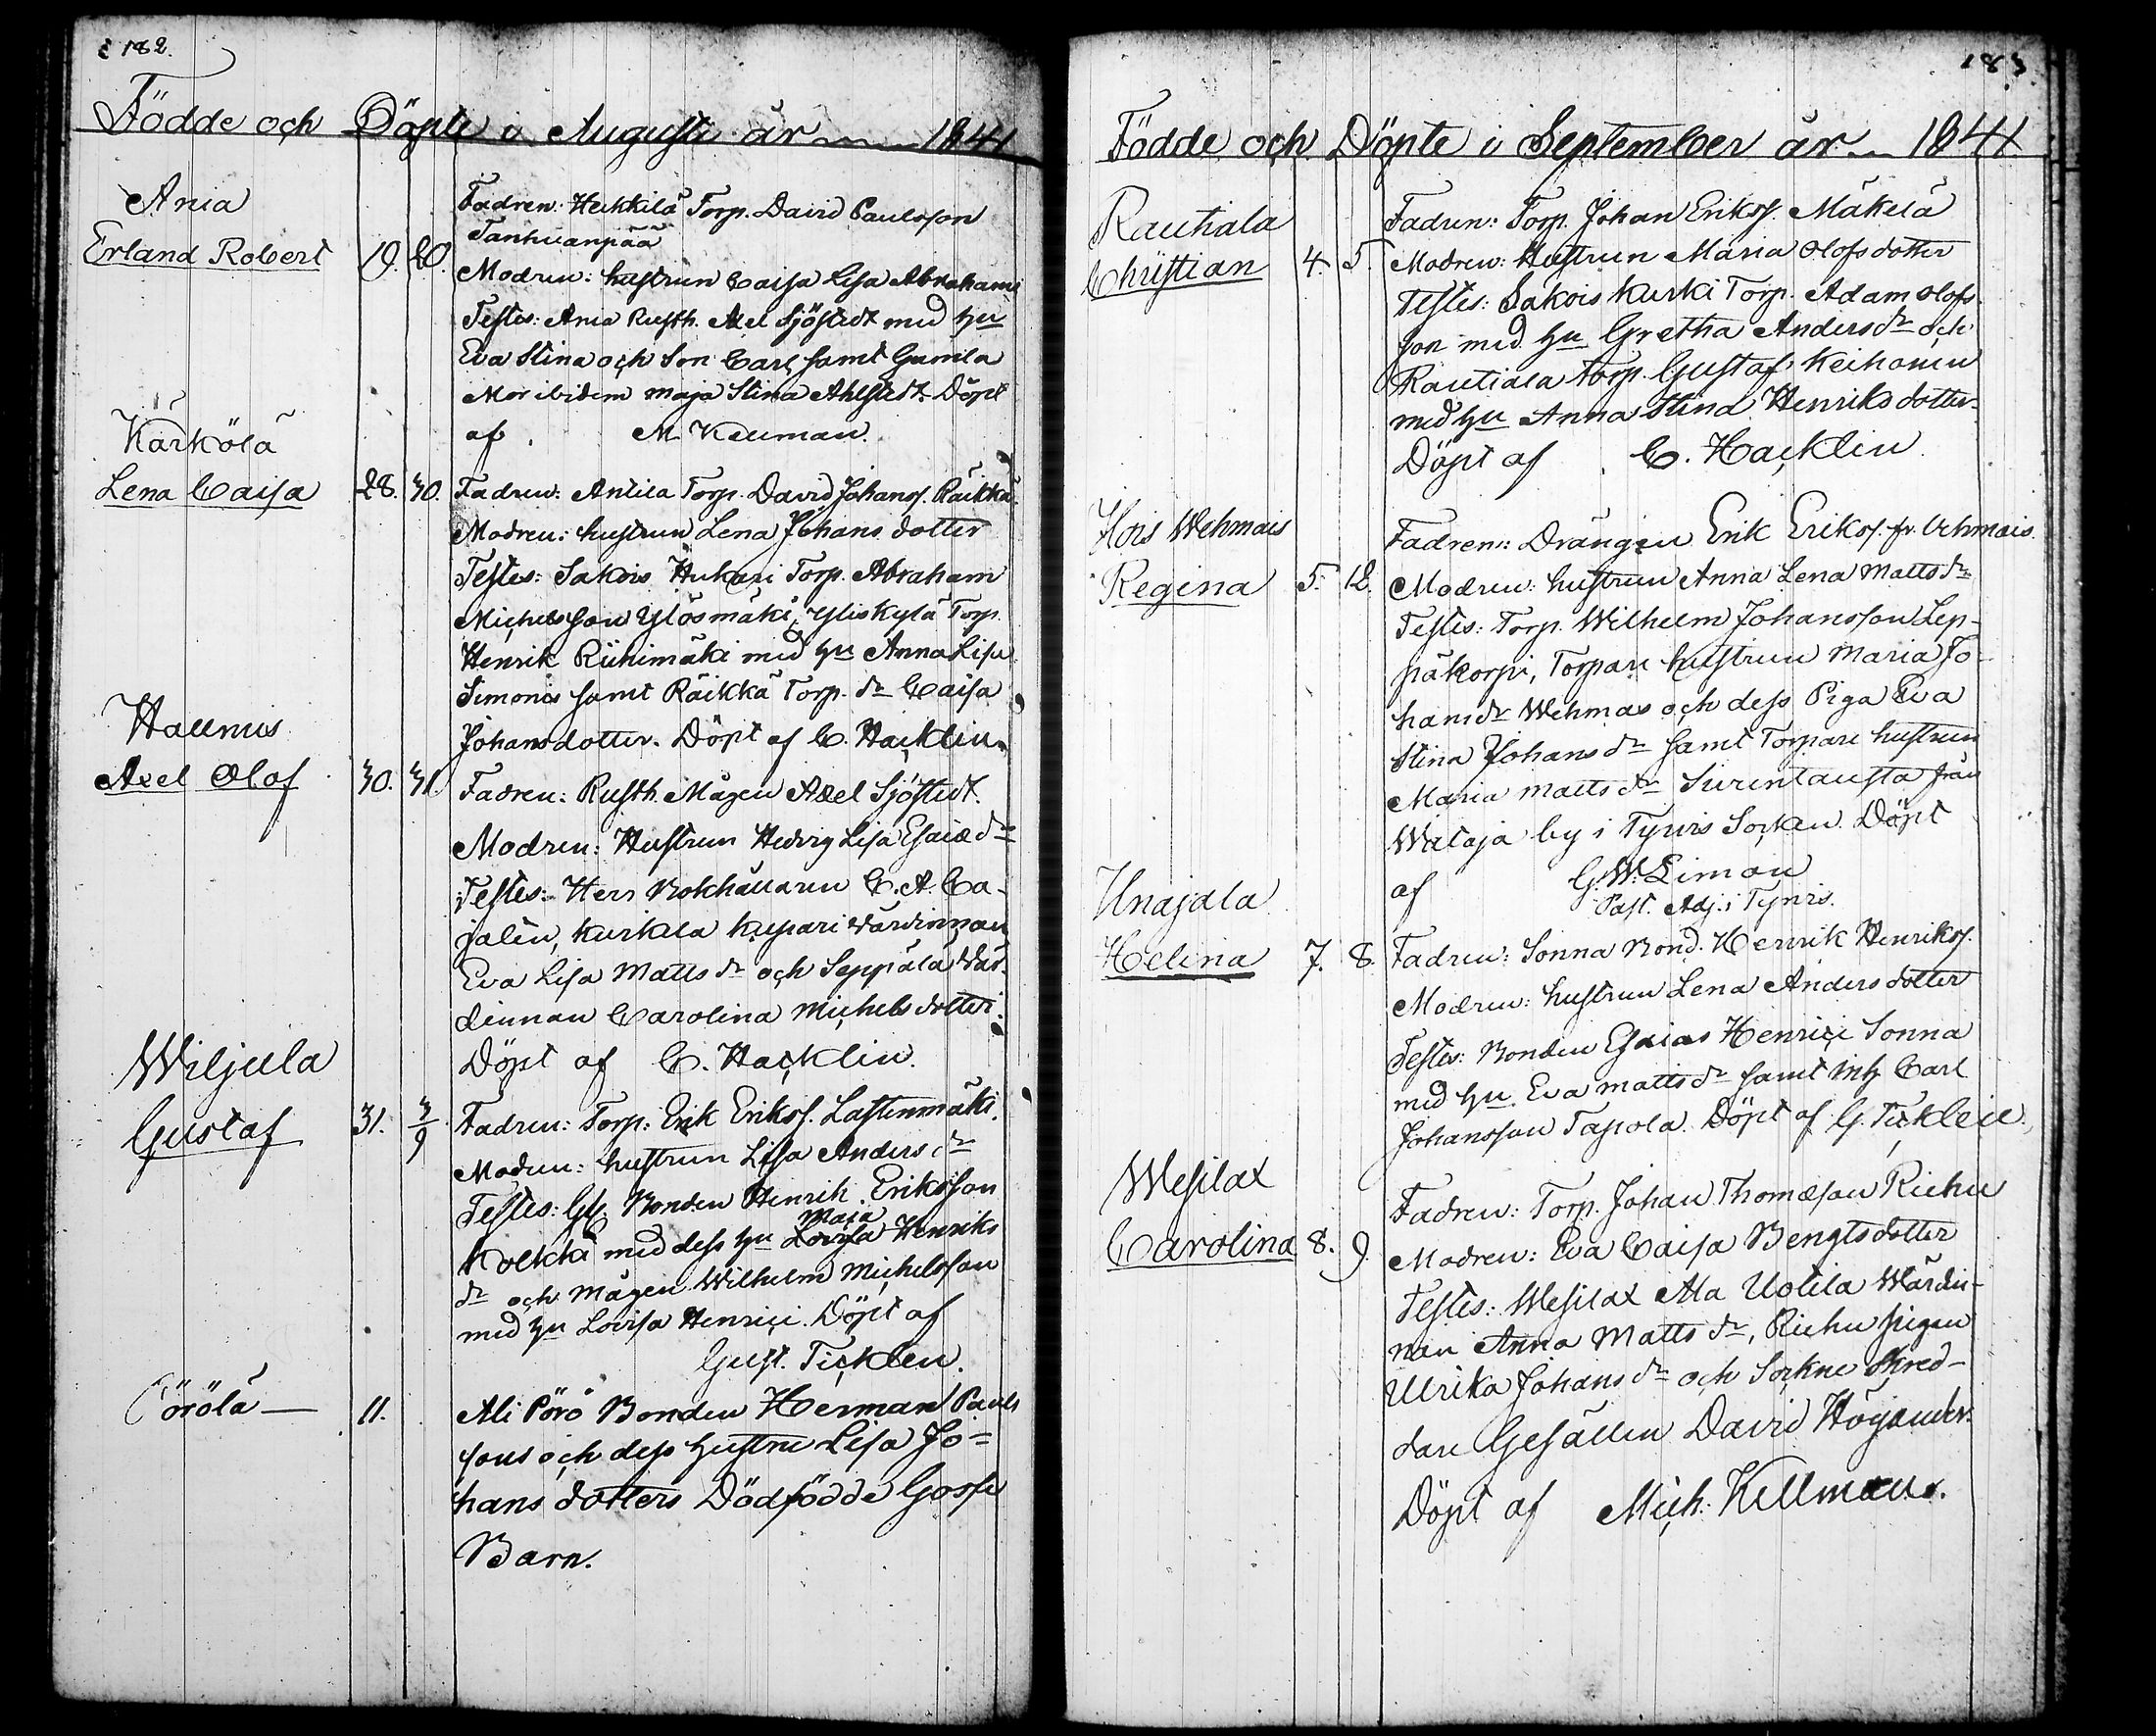 182.
Födde och Döpte i Augusti år 1841
Ania
Erland Robert 19. 20.
Fadren: Heikkilä Torp. David Paulsson
Tanhuanpää
Modren: hustrun Caisa Lisa Abrahams
Testes: Ania Rusth. Axel Sjöstedt med hu
Eva Stina och Son Carl, samt Gamla
Mor ibidem Maja Stina Ahlstedt. Döpt
af M. Kellman.
Kärkölä
Lena Caisa 28. 30.
Fadren: Anttila Torp. David Johanss. Räikkä.
Modren: hustrun Lena Johans dotter
Testes: Sakois Hukari Torp. Abraham
Michelsson Ylösmäki, Yliskylä Torp.
Henrik Riihimäki med hu Anna Lisa
Simonis samt Räikkä Torp. dr Caisa
Johansdotter. Döpt af C. Hacklin.
Hallmis
Axel Olof 30. 31
Fadren: Rusth. Mågen Axel Sjöstedt.
Modren: Hustrun Hedvig Lisa Esaiæ dr
Testes: Herr Bokhållaren C. A. Ca-
jalén, Kurkela Kupari Värdinnan
Eva Lisa Matts dr och Seppälä Vär-
dinnan Carolina Michelsdotter.
Döpt af C. Hacklin.
Wiljula
Gustaf 31. 3/9
Fadren: Torp. Erik Erikss. Lastenmäki.
Modren: hustrun Lisa Anders dr
Testes: Gl. Bonden Henrik Eriksson
Maja
Kolkki med dess hu Lovisa Henriks
dr och mågen Wilhelm Michelsson
med hu Lovisa Henrici. Döpt af
Gust. Ticklen.
Pörölä 11.
Ali Pörö Bonden Herman Pauls
sons och dess hustru Lisa Jo-
hans dotters Dödfödde Gosse
Barn.
183
Födde och Döpte i September år 1841
Rautiala
Christian 4. 5.
Fadren: Torp. Johan Erikss. Mäkelä
Modren: Hustrun Maria Olofsdotter
Testes: Sakois Kurki Torp. Adam Olofs-
son med hu Gretha Anders dr och
Rautiala Torp. Gustaf Keihonen
med hu Anna Stina Henriksdotter.
Döpt af C. Hacklin.
Hois Wehmais
Regina 5. 12.
Fadren: Drängen Erik Erikss. fr. Vehmais.
Modren: hustrun Anna Lena Matts dr
Testes: Torp. Wilhelm Johansson Lep-
päkorpi, Torpare hustrun Maria Jo-
hans dr Wehmas och dess Piga Eva
Stina Johans dr samt Torpare hustrun
Maria Matts dr Surentausta från
Wataja by i Tyrvis Socken. Döpt
af G. W. Liman
Past. Adj. i Tyrvis.
Unajala
Helena 7. 8.
Fadren: Sonna Bond. Henrik Henrikss.
Modren: hustrun Lena Andersdotter
Testes: Bonden Esaias Henrici Sonna
med hu Eva Matts dr samt Inh Carl
Johansson Tapola. Döpt af G. Ticklén.
Wesilax
Carolina 8. 9.
Fadren: Torp. Johan Thomæson Riehu
Modren: Eva Caisa Bengtsdotter
Testes: Wesilax Ala Uotila Wärdin-
nan Anna Matts dr, Riehu pigan
Ulrika Johans dr och Sockne Skred-
dare Gesällen David Höijander.
Döpt af Mich: Kellman.